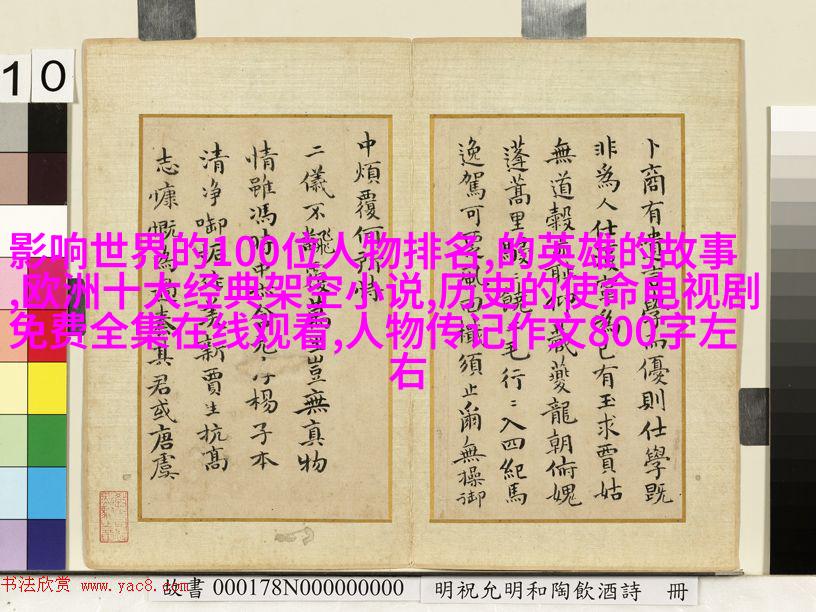 10
影响世界的100位人物排名,的英雄的故事
,欧洲十大经典架空小说,历史的使命电视剧
免费全集在线观看,人物传记作文800字左
右
卜商有言學優則仕學既
非為人仕當為己有玉求賈姑
無道穀夔龍朝俯媿
蓬蒿里饒毛行二入四紀馬
逸駕可風橫須止爾無操御
中煩覆何時
二儀不豈無真物
情雖馮楊子本
清净新賈生抗高
志慷慨為其君或唐虞
书法欣赏 www.yac8.com
故書 000178N000000000
明祝允明和陶飲酒詩 冊